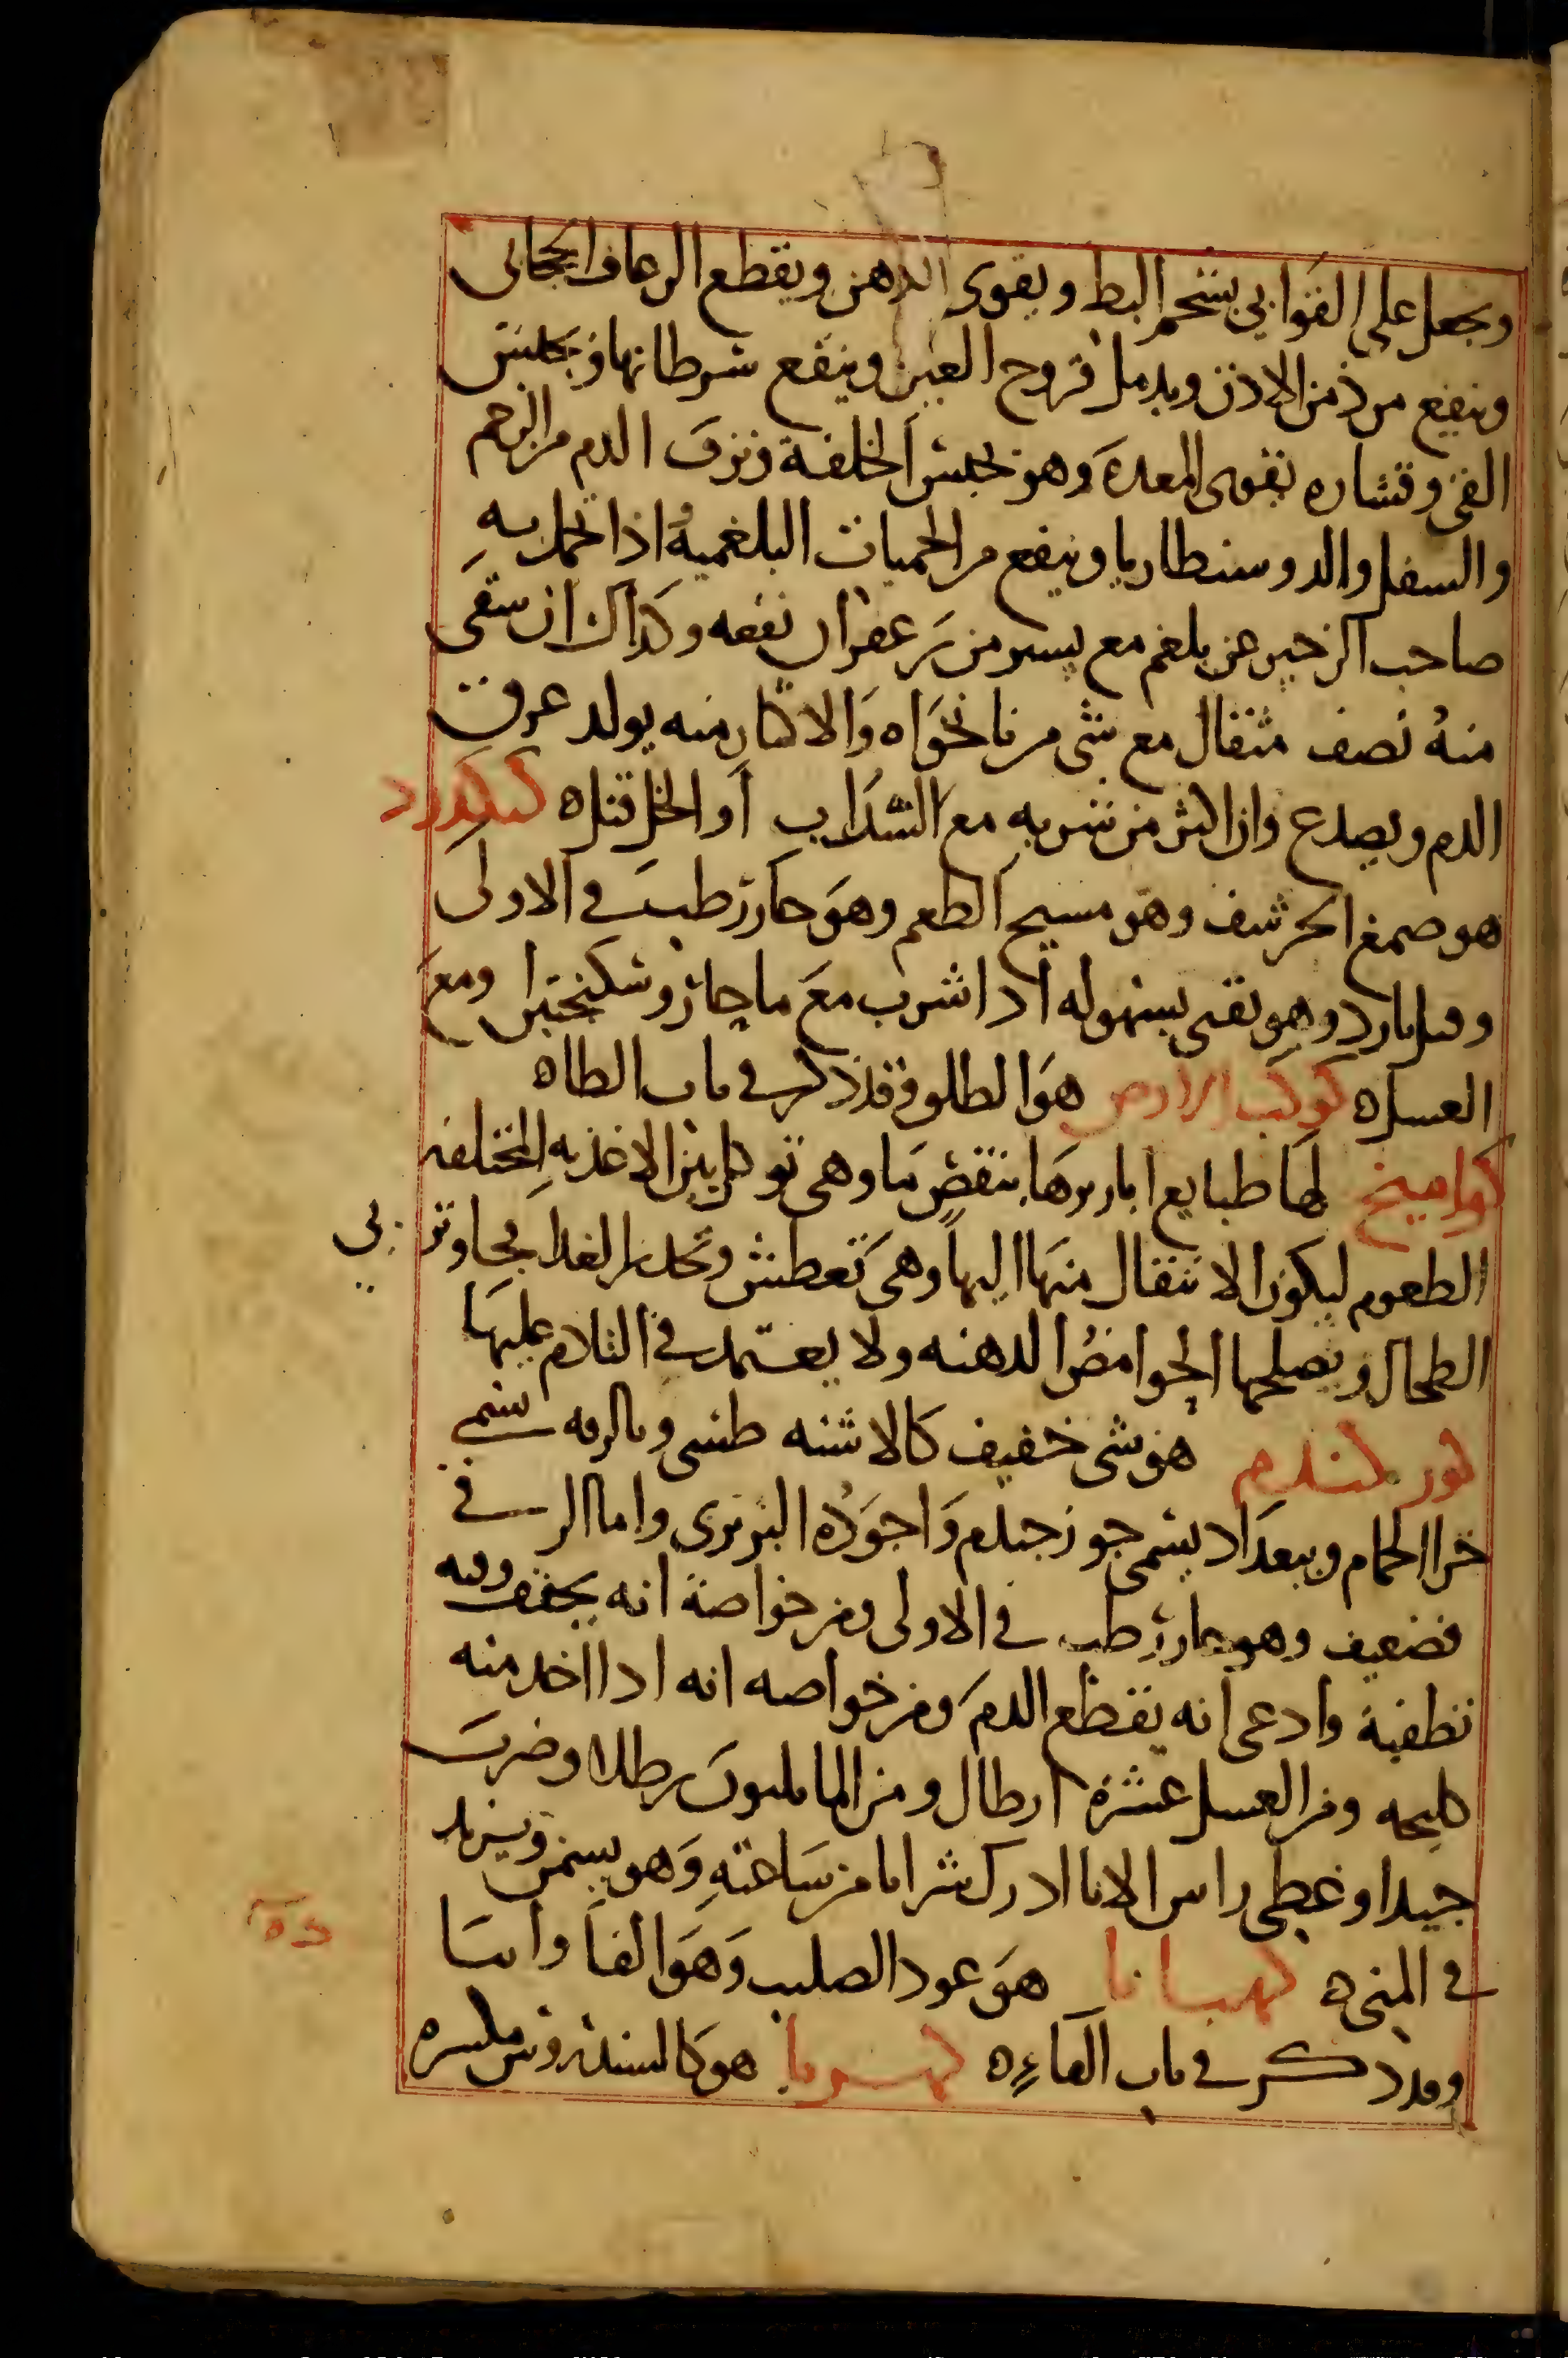 ويجعل على القوابي بشحم البط ويقوى الدهن ويقطع الرعاف الحجابى
وينفع من دمن الادن ويدمل قروح العين وينفع سرطانها ويحبس
القى وقشاره يقوى المعدة وهو يحبس الخلفة ونزف الدم من الرحم
والسفل والدوسنطاريا وينفع من الحميات البلغمية اذا تحمل به
صاحب الزحير عن بلغم مع يسير من زعفران نفعه وكذلك ان سقى
منه نصف مثقال مع شى من نانخواه والاكثار منه يولد عرق
الدم ويصدع وان اكثر من شربه مع الشراب او الخل قتل ه كنكرزد
هو صمغ الحرشف وهو مسيح الطعم وهو حار رطب فى الاولى
وقيل بارد وهو يقى بسهوله اذا شرب مع ما حار وسكنجبين ومع
العسل ه كوكب الارض هو الطلق وقد ذكر فى باب الطا ه
كواميخ لها طبايع ابازيرها بنقص ما وهى توكل بين الاغذيه المختلفه
الطعوم ليكون الانتقال منها اليها وهى تعطش وتحدر الغدا بحا وتربي
الطحال ويصلحها الحوامض الدهنه ولا يعتمد فى التلادم عليها
كور كندم هو شى خفيف كالاشنه طينى وبالرقه يسمى
خرا الحمام وببغداد يسمى جوز جندم واجوده البربرى واما الر فى
فضعيف وهو حار رطب فى الاولى ومن خواصة انه يجفف وفيه
تطفية وادعى انه يقطع الدم ومن خواصه انه ادا اخد منه
كليجه ومن العسل عشرة ارطال ومن الما ثلثون رطلا وضرب
جيدا وغطى راس الانا ادرك شرابا من ساعته وهو يسمن ويزيد
فى المنى ه كهيانا هو عود الصليب وهو الفاوانيا
وقد ذكر فى باب الفاء ه كهربا هو كالسندروس مكسره